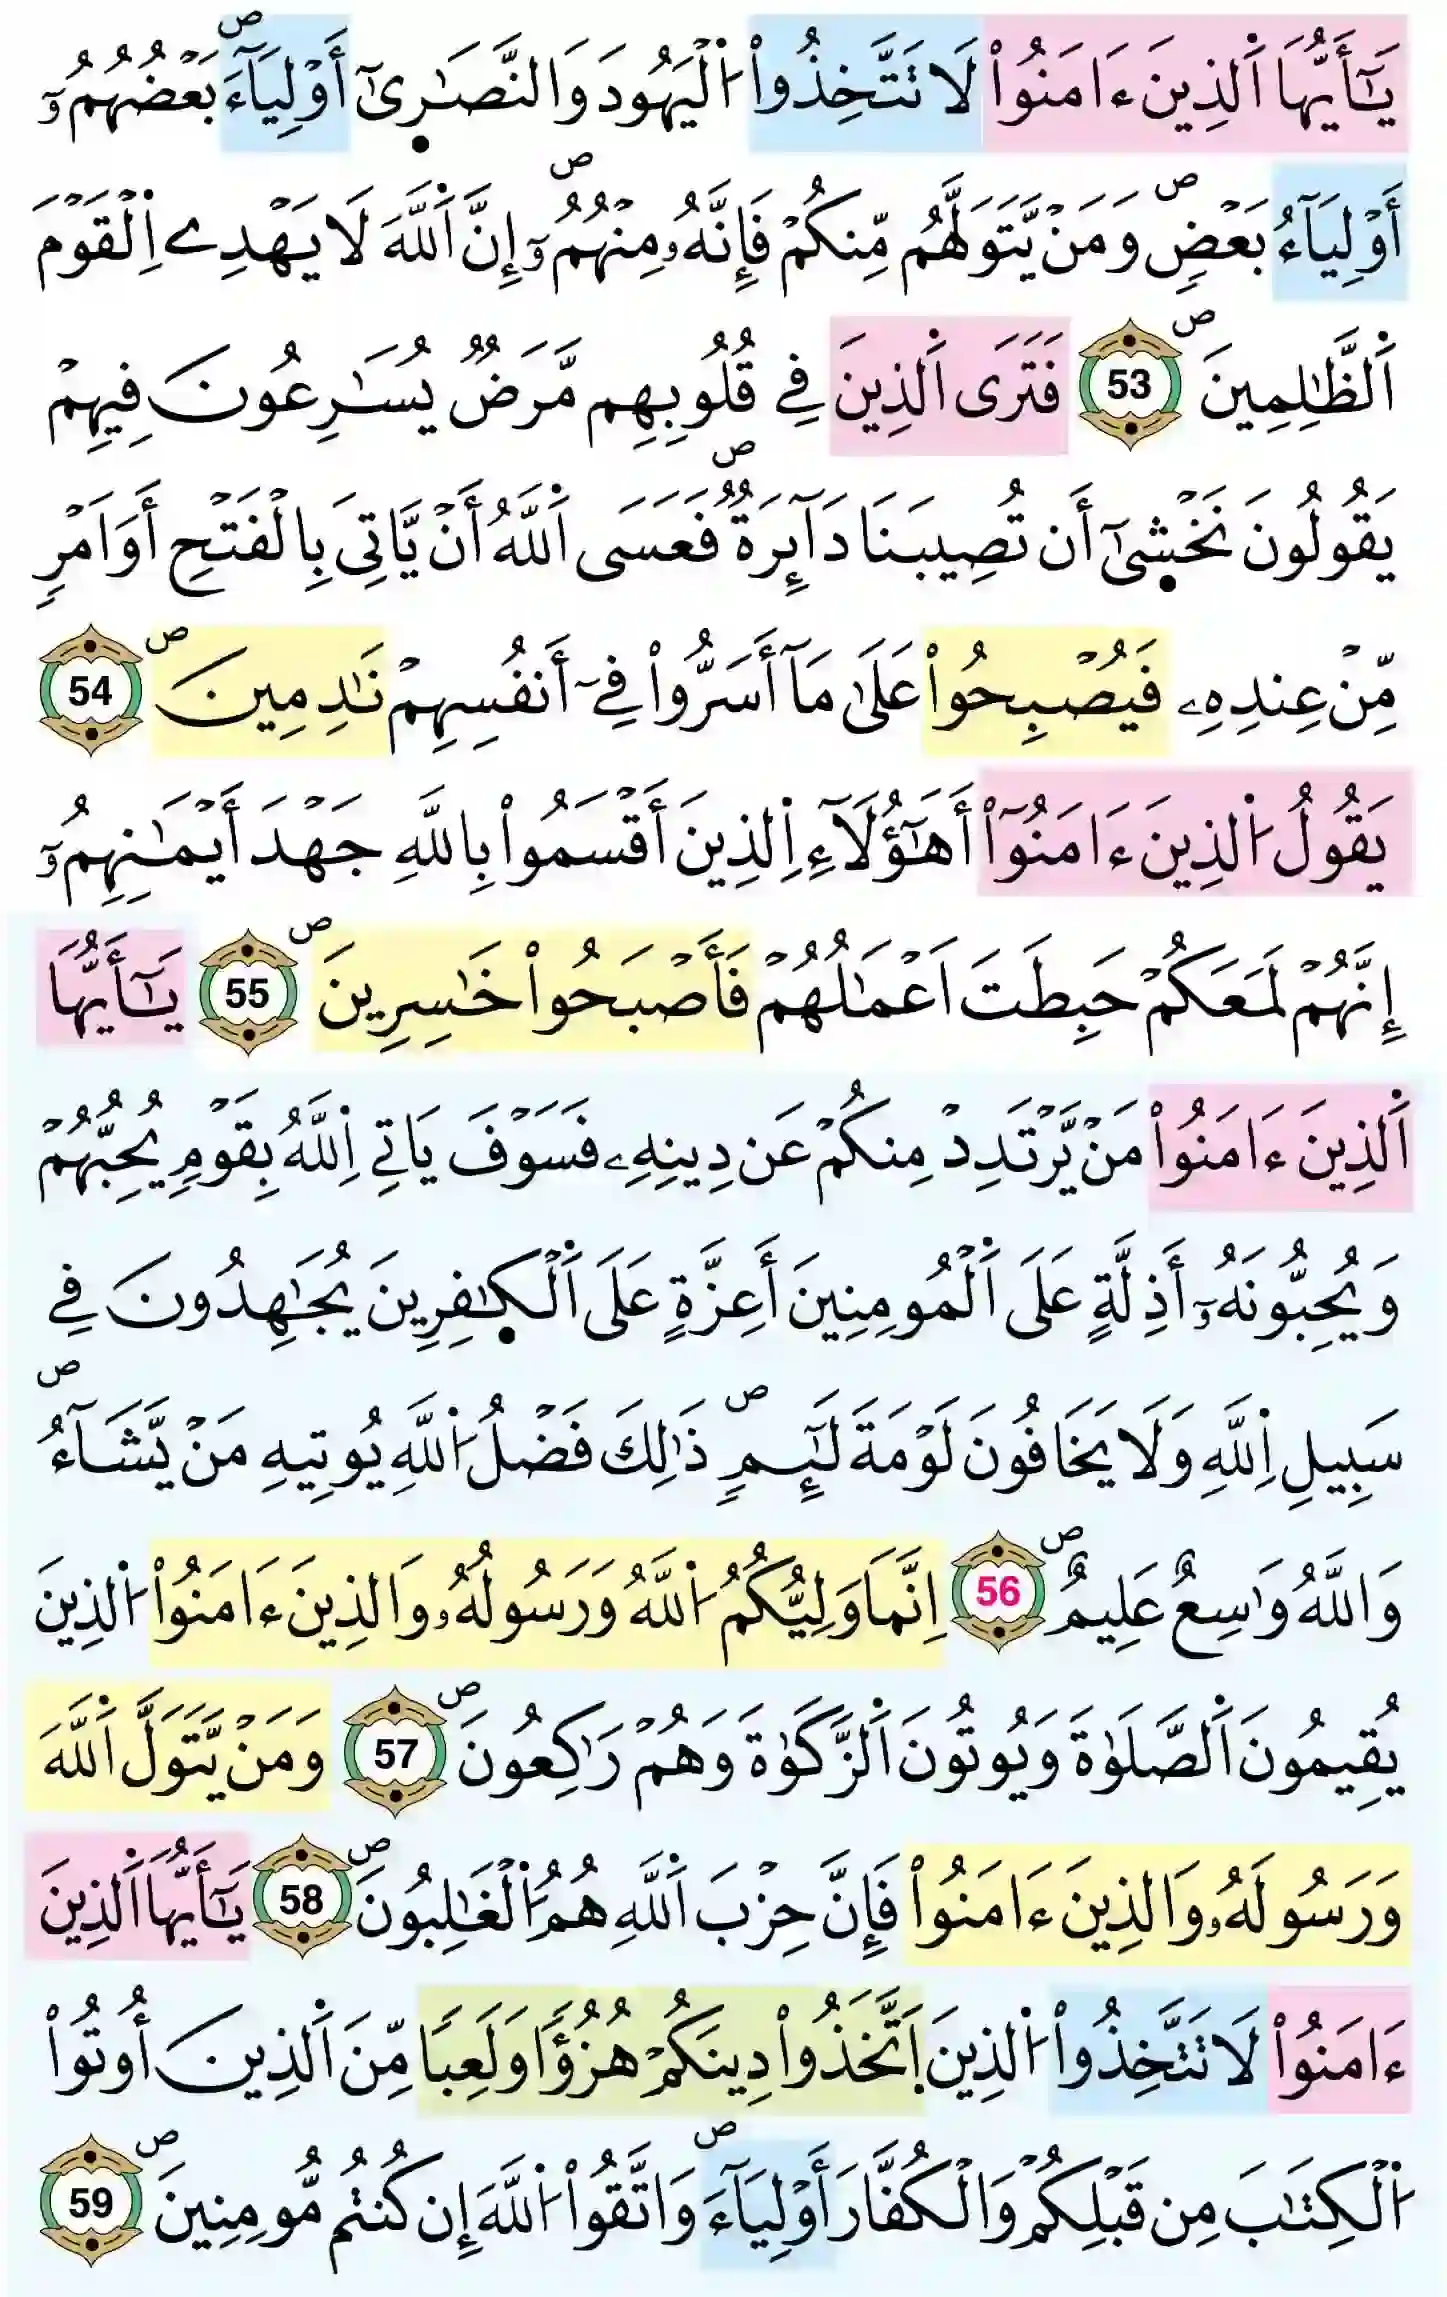 يَـٰٓأَيُّهَا اَ۬لذِينَ ءَامَنُواْ لَا تَتَّخِذُواْ اُ۬لْيَهُودَ وَالنَّصَـٰر۪ىٰٓ أَوْلِيَآءَۖ بَعْضُهُمُۥٓ
أَوْلِيَآءُ بَعْضٖۖ وَمَنْ يَّتَوَلَّهُم مِّنكُمْ فَإِنَّهُۥ مِنْهُمُۥٓۖ إِنَّ اَ۬للَّهَ لَا يَهْدِے اِ۬لْقَوْمَ
اَ۬لظَّـٰلِمِينَۖ 53 فَتَرَى اَ۬لذِينَ فِے قُلُوبِهِم مَّرَضٞ يُسَـٰرِعُونَ فِيهِمْ
يَقُولُونَ نَخْش۪ىٰٓ أَن تُصِيبَنَا دَآئِرَةٞۖ فَعَسَى اَ۬للَّهُ أَنْ يَّاتِىَ بِالْفَتْحِ أَوَ اَمْرٖ
مِّنْ عِندِهِۦ فَيُصْبِحُواْ عَلَىٰ مَآ أَسَرُّواْ فِےٓ أَنفُسِهِمْ نَـٰدِمِينَۖ 54
يَقُولُ اُ۬لذِينَ ءَامَنُوٓاْ أَهَـٰٓؤُلَآءِ اِ۬لذِينَ أَقْسَمُواْ بِاللَّهِ جَهْدَ أَيْمَـٰنِهِمُۥٓ
إِنَّهُمْ لَمَعَكُمْ حَبِطَتَ اَعْمَـٰلُهُمْ فَأَصْبَحُواْ خَـٰسِرِينَۖ 55 يَـٰٓأَيُّهَا
اَ۬لذِينَ ءَامَنُواْ مَنْ يَّرْتَدِدْ مِنكُمْ عَن دِينِهِۦ فَسَوْفَ يَاتِے اِ۬للَّهُ بِقَوْمٖ يُحِبُّهُمْ
وَيُحِبُّونَهُۥٓ أَذِلَّةٍ عَلَى اَ۬لْمُومِنِينَ أَعِزَّةٍ عَلَى اَ۬لْكٰ۪فِرِينَ يُجَـٰهِدُونَ فِے
سَبِيلِ اِ۬للَّهِ وَلَا يَخَافُونَ لَوْمَةَ لَآئِمٖۖ ذَٰلِكَ فَضْلُ اُ۬للَّهِ يُوتِيهِ مَنْ يَّشَآءُۖ
وَاللَّهُ وَٰسِعٌ عَلِيمٌۖ 56 اِنَّمَا وَلِيُّكُمُ اُ۬للَّهُ وَرَسُولُهُۥ وَالذِينَ ءَامَنُواْ اُ۬لذِينَ
يُقِيمُونَ اَ۬لصَّلَوٰةَ وَيُوتُونَ اَ۬لزَّكَوٰةَ وَهُمْ رَٰكِعُونَۖ 57 وَمَنْ يَّتَوَلَّ اَ۬للَّهَ
وَرَسُولَهُۥ وَالذِينَ ءَامَنُواْ فَإِنَّ حِزْبَ اَ۬للَّهِ هُمُ اُ۬لْغَـٰلِبُونَۖ 58 يَـٰٓأَيُّهَا اَ۬لذِينَ
ءَامَنُواْ لَا تَتَّخِذُواْ اُ۬لذِينَ اَ۪تَّخَذُواْ دِينَكُمْ هُزُؤاٗ وَلَعِباٗ مِّنَ اَ۬لذِينَ أُوتُواْ
اُ۬لْكِتَـٰبَ مِن قَبْلِكُمْ وَالْكُفَّارَ أَوْلِيَآءَۖ وَاتَّقُواْ اُ۬للَّهَ إِن كُنتُم مُّومِنِينَۖ 59